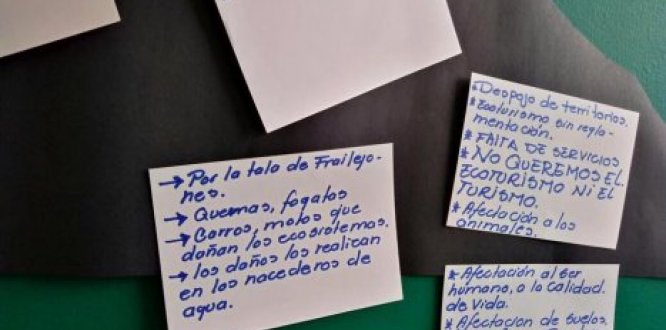 → Por la tala de Frailejo-
nes.
→ Quemas, fogatas
→ Carros, motos que
dañan los ecosistemas.
→ los daños los realizan
en los nacederos de
agua.
* Despojo de territorios.
* Ecoturismo sin regla-
mentación.
* FALTA DE SERVICIOS
* NO QUEREMOS EL
ECOTURISMO NI EL
TURISMO.
* Afectación a los
animales.
* Afectación al ser
humano, a la calidad
de vida.
* Afectacion de suelos.